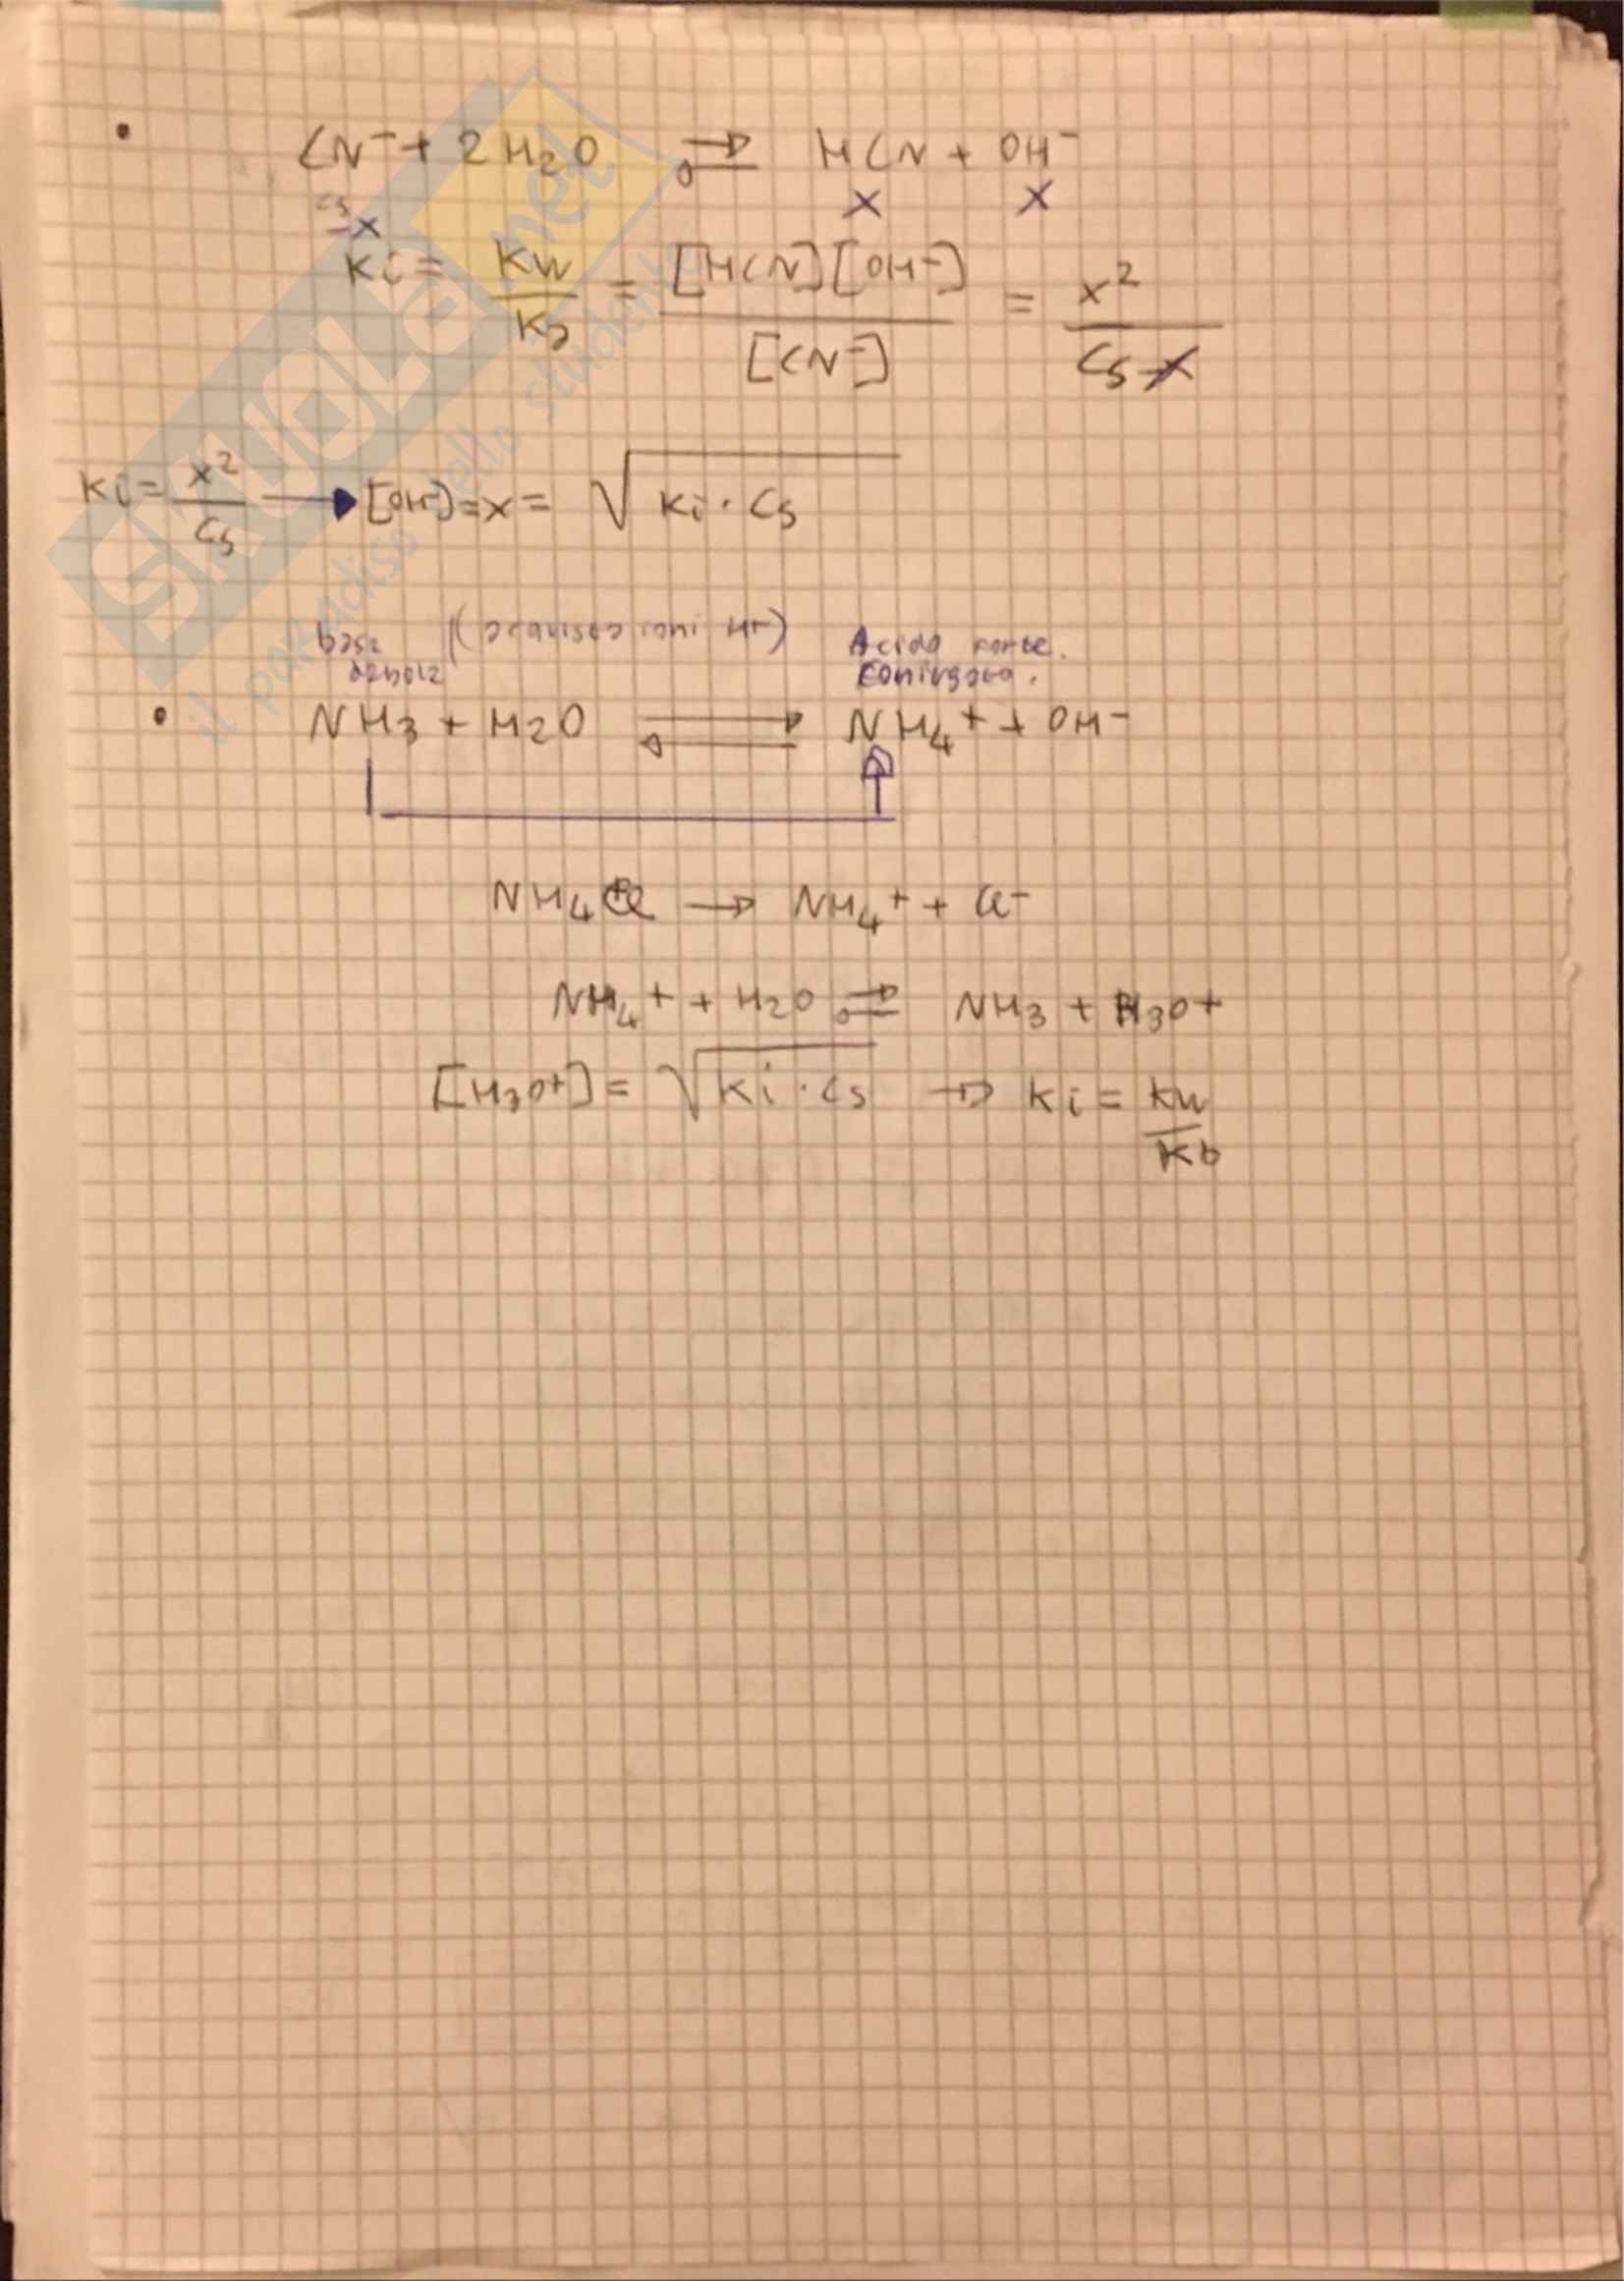 • CN⁻ + 2H₂O ⇄ HCN + OH⁻
cs-x x x
Ki = Kw/Ka = [HCN][OH⁻]/[CN⁻] = x²/(Cs-x)
Ki = x²/Cs → [OH⁻] = x = √(Ki · Cs)
base debole (acquisisce ioni H+) Acido forte coniugato.
• NH₃ + H₂O ⇄ NH₄⁺ + OH⁻
NH₄Cl → NH₄⁺ + Cl⁻
NH₄⁺ + H₂O ⇄ NH₃ + H₃O⁺
[H₃O⁺] = √(Ki · Cs) → Ki = Kw/Kb
SKUOLA.net
il paradiso dello studente